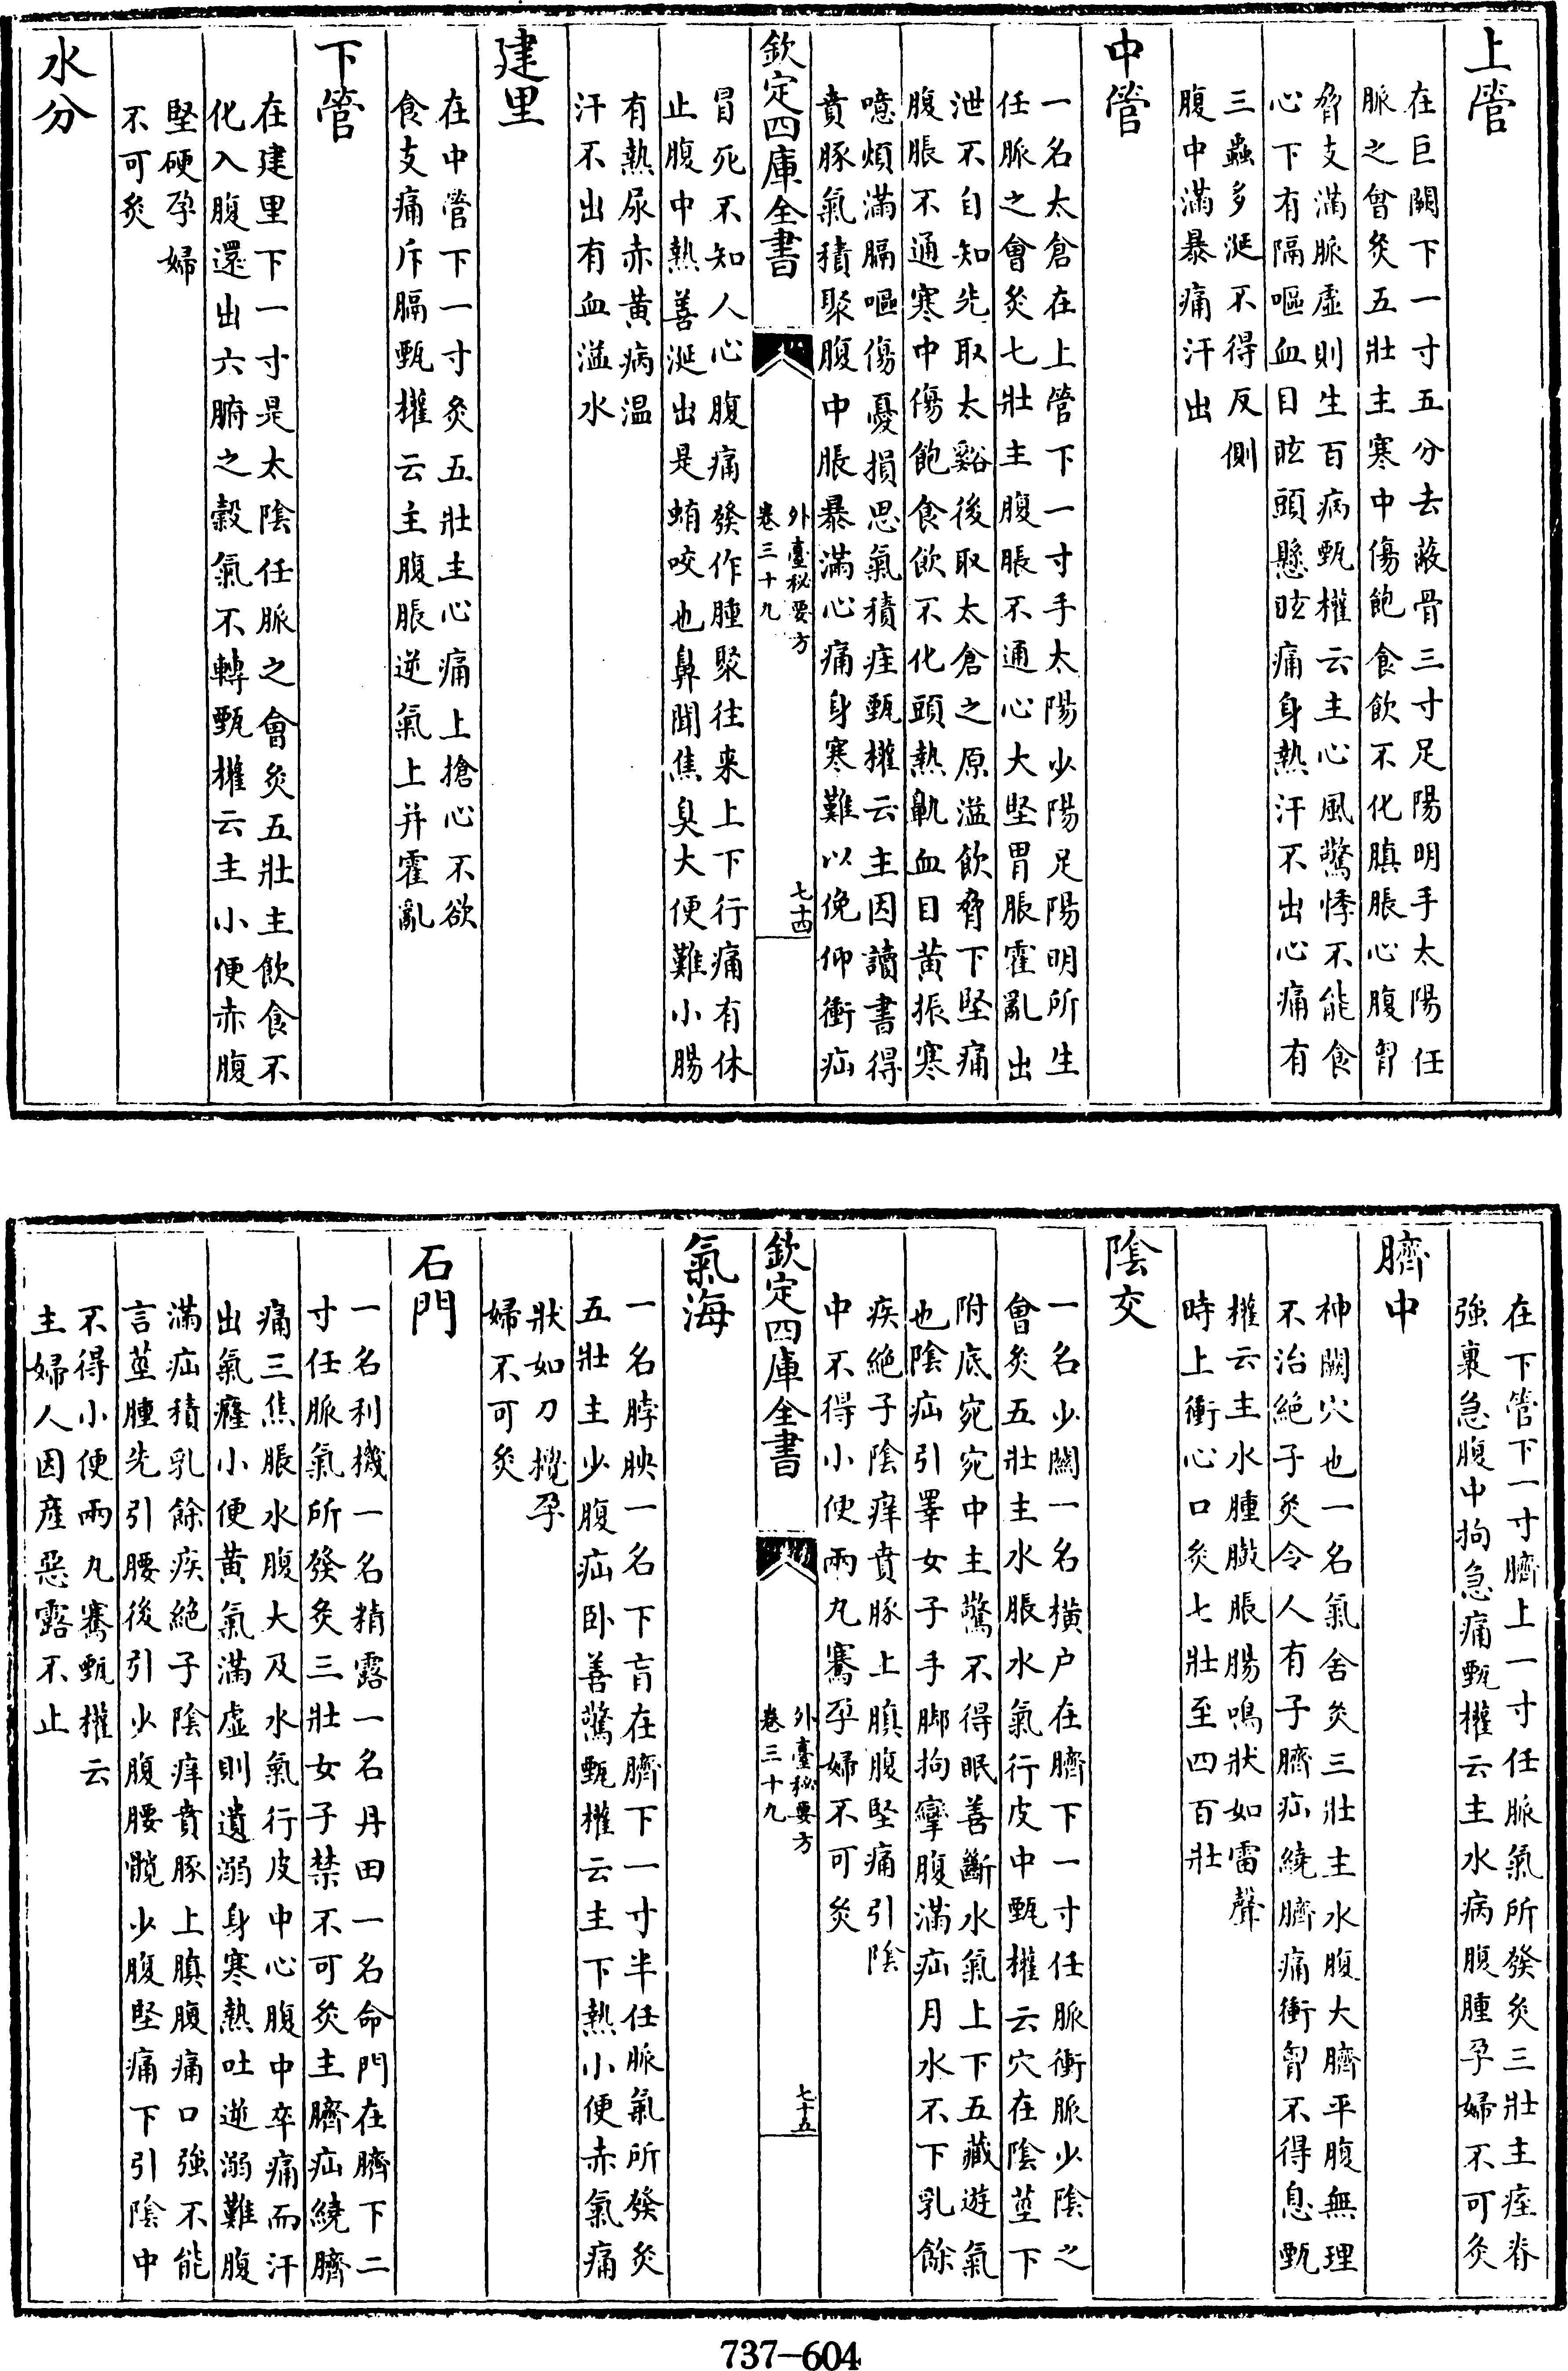 上管
在巨闕下一寸五分去蔽骨三寸足陽明手太陽任
脈之會灸五壯主寒中傷飽食飲不化䐜脹心腹胷
脅支滿脈虛則生百病甄權云主心風驚悸不能食
心下有隔嘔血目眩頭懸眩痛身熱汗不出心痛有
三蟲多涎不得反側
腹中滿暴痛汗出
中管
一名太倉在上管下一寸手太陽少陽足陽明所生
任脈之會灸七壯主腹脹不通心大堅胃脹霍亂出
泄不自知先取太谿後取太倉之原溢飲脅下堅痛
腹脹不通寒中傷飽食飲不化頭熱鼽血目黃振寒
噫煩滿膈嘔傷憂損思氣積疰甄權云主因讀書得
賁豚氣積聚腹中脹暴滿心痛身寒難以俛仰衝疝
欽定四庫全書
外臺秘要方
卷三十九
七十四
冒死不知人心腹痛發作腫聚往来上下行痛有休
止腹中熱善涎出是蛕咬也鼻聞焦臭大便難小腸
有熱尿赤黃病温
汗不出有血溢水
建里
在中管下一寸灸五壯主心痛上搶心不欲
食支痛斥膈甄權云主腹脹逆氣上并霍亂
下管
在建里下一寸是太陰任脈之會灸五壯主飲食不
化入腹還出六腑之穀氣不轉甄權云主小便赤腹
堅硬孕婦
不可灸
水分
在下管下一寸臍上一寸任脈氣所發灸三壯主痓脊
強裏急腹中拘急痛甄權云主水病腹腫孕婦不可灸
臍中
神闕穴也一名氣舍灸三壯主水腹大臍平腹無理
不治絕子灸令人有子臍疝繞臍痛衝胷不得息甄
權云主水腫臌脹腸鳴狀如雷聲
時上衝心口灸七壯至四百壯
陰交
一名少關一名橫户在臍下一寸任脈衝脈少陰之
會灸五壯主水脹水氣行皮中甄權云穴在陰莖下
附底宛宛中主驚不得眠善斷水氣上下五藏遊氣
也陰疝引睪女子手脚拘攣腹滿疝月水不下乳餘
疾絕子陰痒賁豚上䐜腹堅痛引陰
中不得小便兩丸騫孕婦不可灸
欽定四庫全書
外臺秘要方
卷三十九
七十五
氣海
一名脖胦一名下肓在臍下一寸半任脈氣所發灸
五壯主少腹疝卧善驚甄權云主下熱小便赤氣痛
狀如刀攪孕
婦不可灸
石門
一名利機一名精露一名丹田一名命門在臍下二
寸任脈氣所發灸三壯女子禁不可灸主臍疝繞臍
痛三焦脹水腹大及水氣行皮中心腹中卒痛而汗
出氣癃小便黃氣滿虛則遺溺身寒熱吐逆溺難腹
滿疝積乳餘疾絕子陰痒賁豚上䐜腹痛口強不能
言莖腫先引腰後引少腹腰髖少腹堅痛下引陰中
不得小便兩丸騫甄權云
主婦人因産惡露不止
737-604